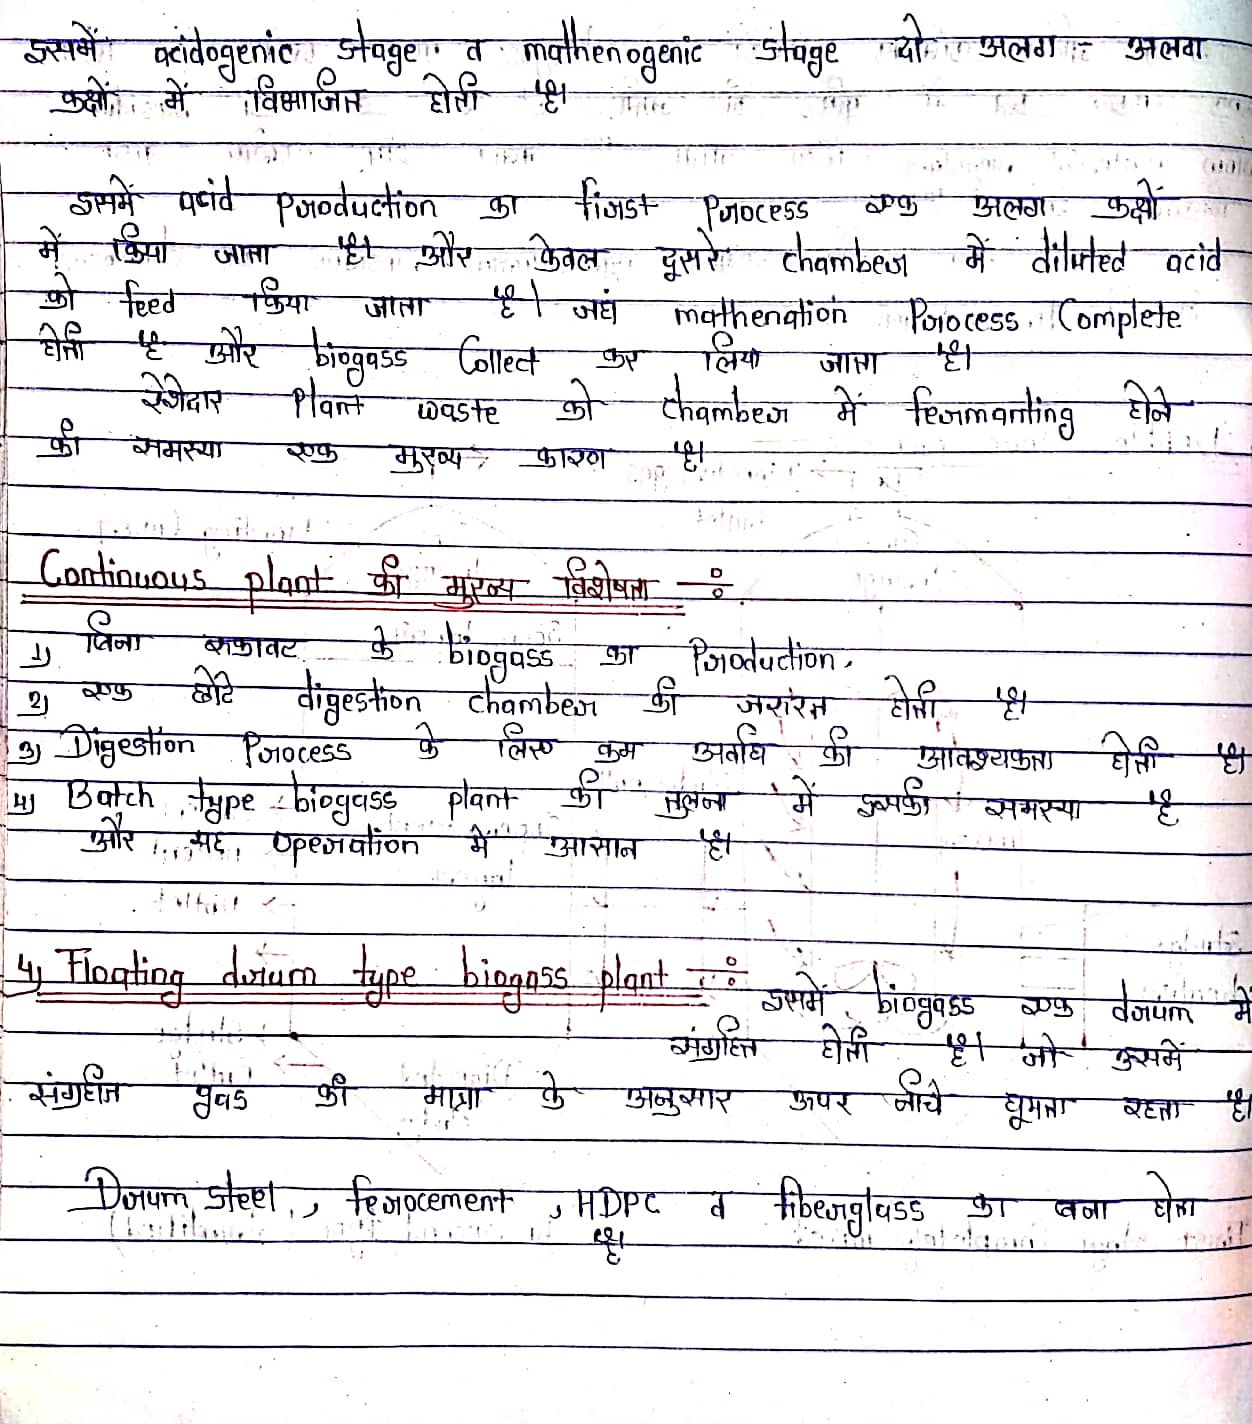 इसमें acidogenic stage व mathenogenic stage दो अलग - अलग
कक्षों में विभाजित होती है।
इसमें acid production का first process एक अलग कक्षों
में किया जाता है। और केवल दूसरे chamber में diluted acid
को feed किया जाता है। जहां mathenation Process Complete
होती है और biogass Collect कर लिया जाता है।
रेशेदार plant waste को chamber में fermanting होने
की समस्या एक मुख्य कारण है।
Continuous plant की मुख्य विशेषता ÷
1) बिना रुकावट के biogass का Production.
2) एक छोटे digestion chamber की जरुरत होती है।
3) Digestion Process के लिए कम अवधि की आवश्यकता होती है।
4) Batch type biogass plant की तुलना में इसकी समस्या है
और यह operation में आसान है।
4) Floating drum type biogass plant ÷ इसमें biogass एक drum में
संग्रहित होती है। जो उसमें
संग्रहीत gas की मात्रा के अनुसार ऊपर नीचे घूमता रहता है।
Drum steel, ferocement, HDPC व fiberglass का बना होता
है।